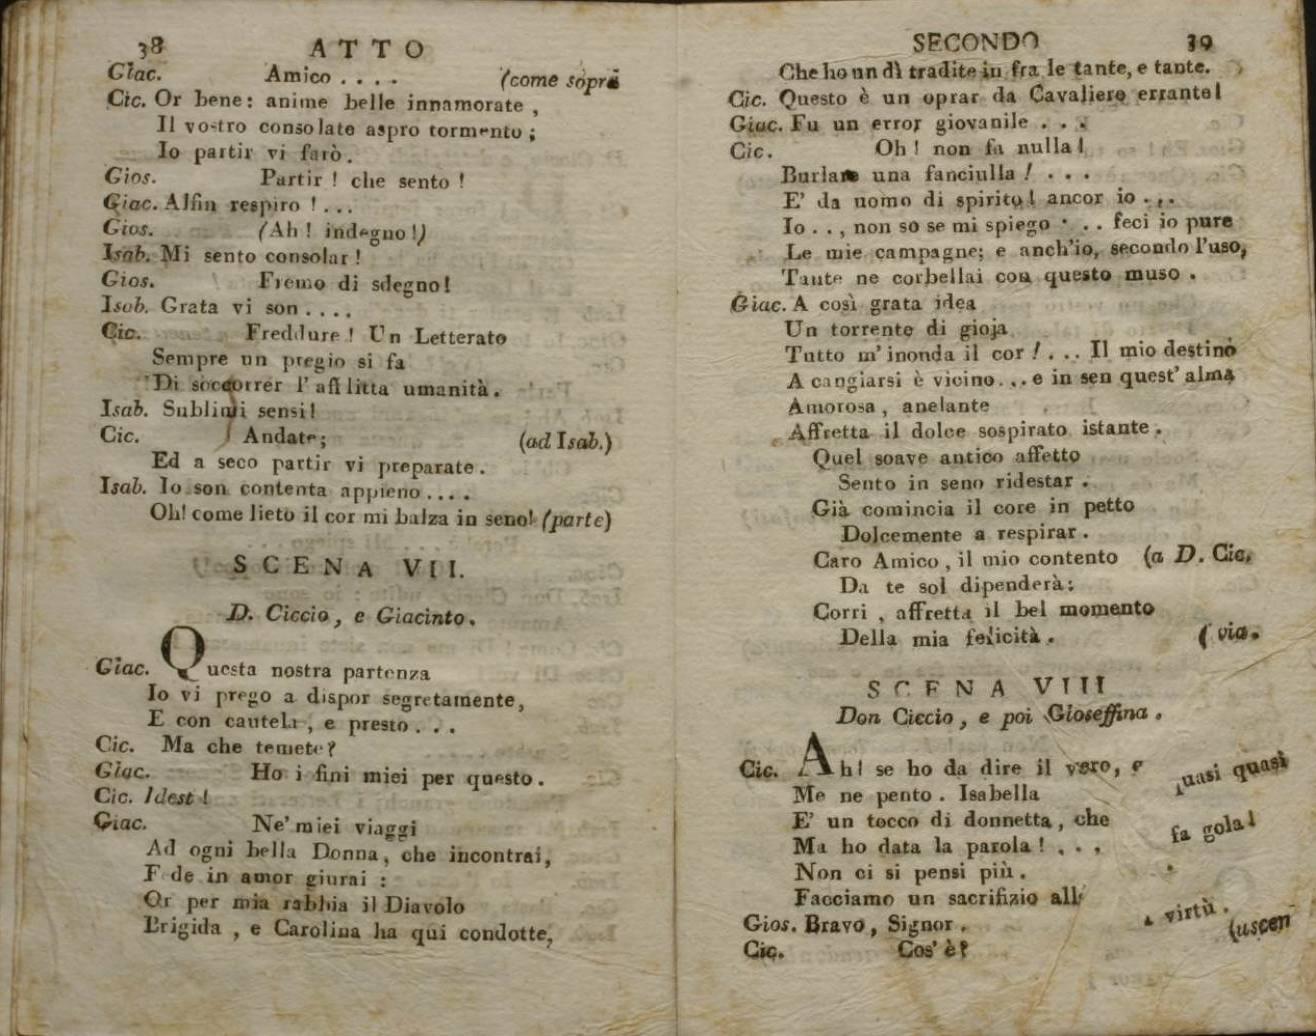 38 ATTO
Giac. Amico . . . . (come sopra
Cic. Or bene: anime belle innamorate ,
Il vostro consolate aspro tormento ;
Io partir vi farò.
Gios. Partir ! che sento !
Giac. Alfin respiro ! . . .
Gios. (Ah ! indegno !)
Isab. Mi sento consolar !
Gios. Fremo di sdegno!
Isab. Grata vi son . . . .
Cic. Freddure ! Un Letterato
Sempre un pregio si fa
Di soccorrer l' afflitta umanità .
Isab. Sublimi sensi!
Cic. Andate; (ad Isab.)
Ed a seco partir vi preparate .
Isab. Io son contenta appieno . . . .
Oh! come lieto il cor mi balza in seno! (parte)
SCENA VII.
D. Ciccio, e Giacinto.
Giac. Questa nostra partenza
Io vi prego a dispor segretamente,
E con cautela , e presto . . .
Cic. Ma che temete?
Giac. Ho i fini miei per questo .
Cic. Idest !
Giac. Ne' miei viaggi
Ad ogni bella Donna, che incontrai,
Fede in amor giurai :
Or per mia rabbia il Diavolo
Brigida , e Carolina ha qui condotte,
SECONDO 39
Che ho un dì tradite in fra le tante, e tante.
Cic. Questo è un oprar da Cavaliere errante!
Giac. Fu un error giovanile . . .
Cic. Oh ! non fa nulla !
Burlare una fanciulla ! . . .
E' da uomo di spirito ! ancor io . . .
Io . . , non so se mi spiego . . . feci io pure
Le mie campagne; e anch'io, secondo l'uso,
Tante ne corbellai con questo muso .
Giac. A così grata idea
Un torrente di gioja
Tutto m' inonda il cor ! . . . Il mio destino
A cangiarsi è vicino . . . e in sen quest' alma
Amorosa , anelante
Affretta il dolce sospirato istante .
Quel soave antico affetto
Sento in seno ridestar .
Già comincia il core in petto
Dolcemente a respirar .
Caro Amico , il mio contento (a D. Cic.
Da te sol dipenderà;
Corri , affretta il bel momento
Della mia felicità . ( via.
SCENA VIII
Don Ciccio, e poi Gioseffina .
Cic. Ah! se ho da dire il vero, e quasi quasi
Me ne pento . Isabella
E' un tocco di donnetta, che fa gola!
Ma ho data la parola ! . . .
Non ci si pensi più .
Facciamo un sacrifizio alla virtù .
Gios. Bravo, Signor . (uscen
Cic. Cos' è?